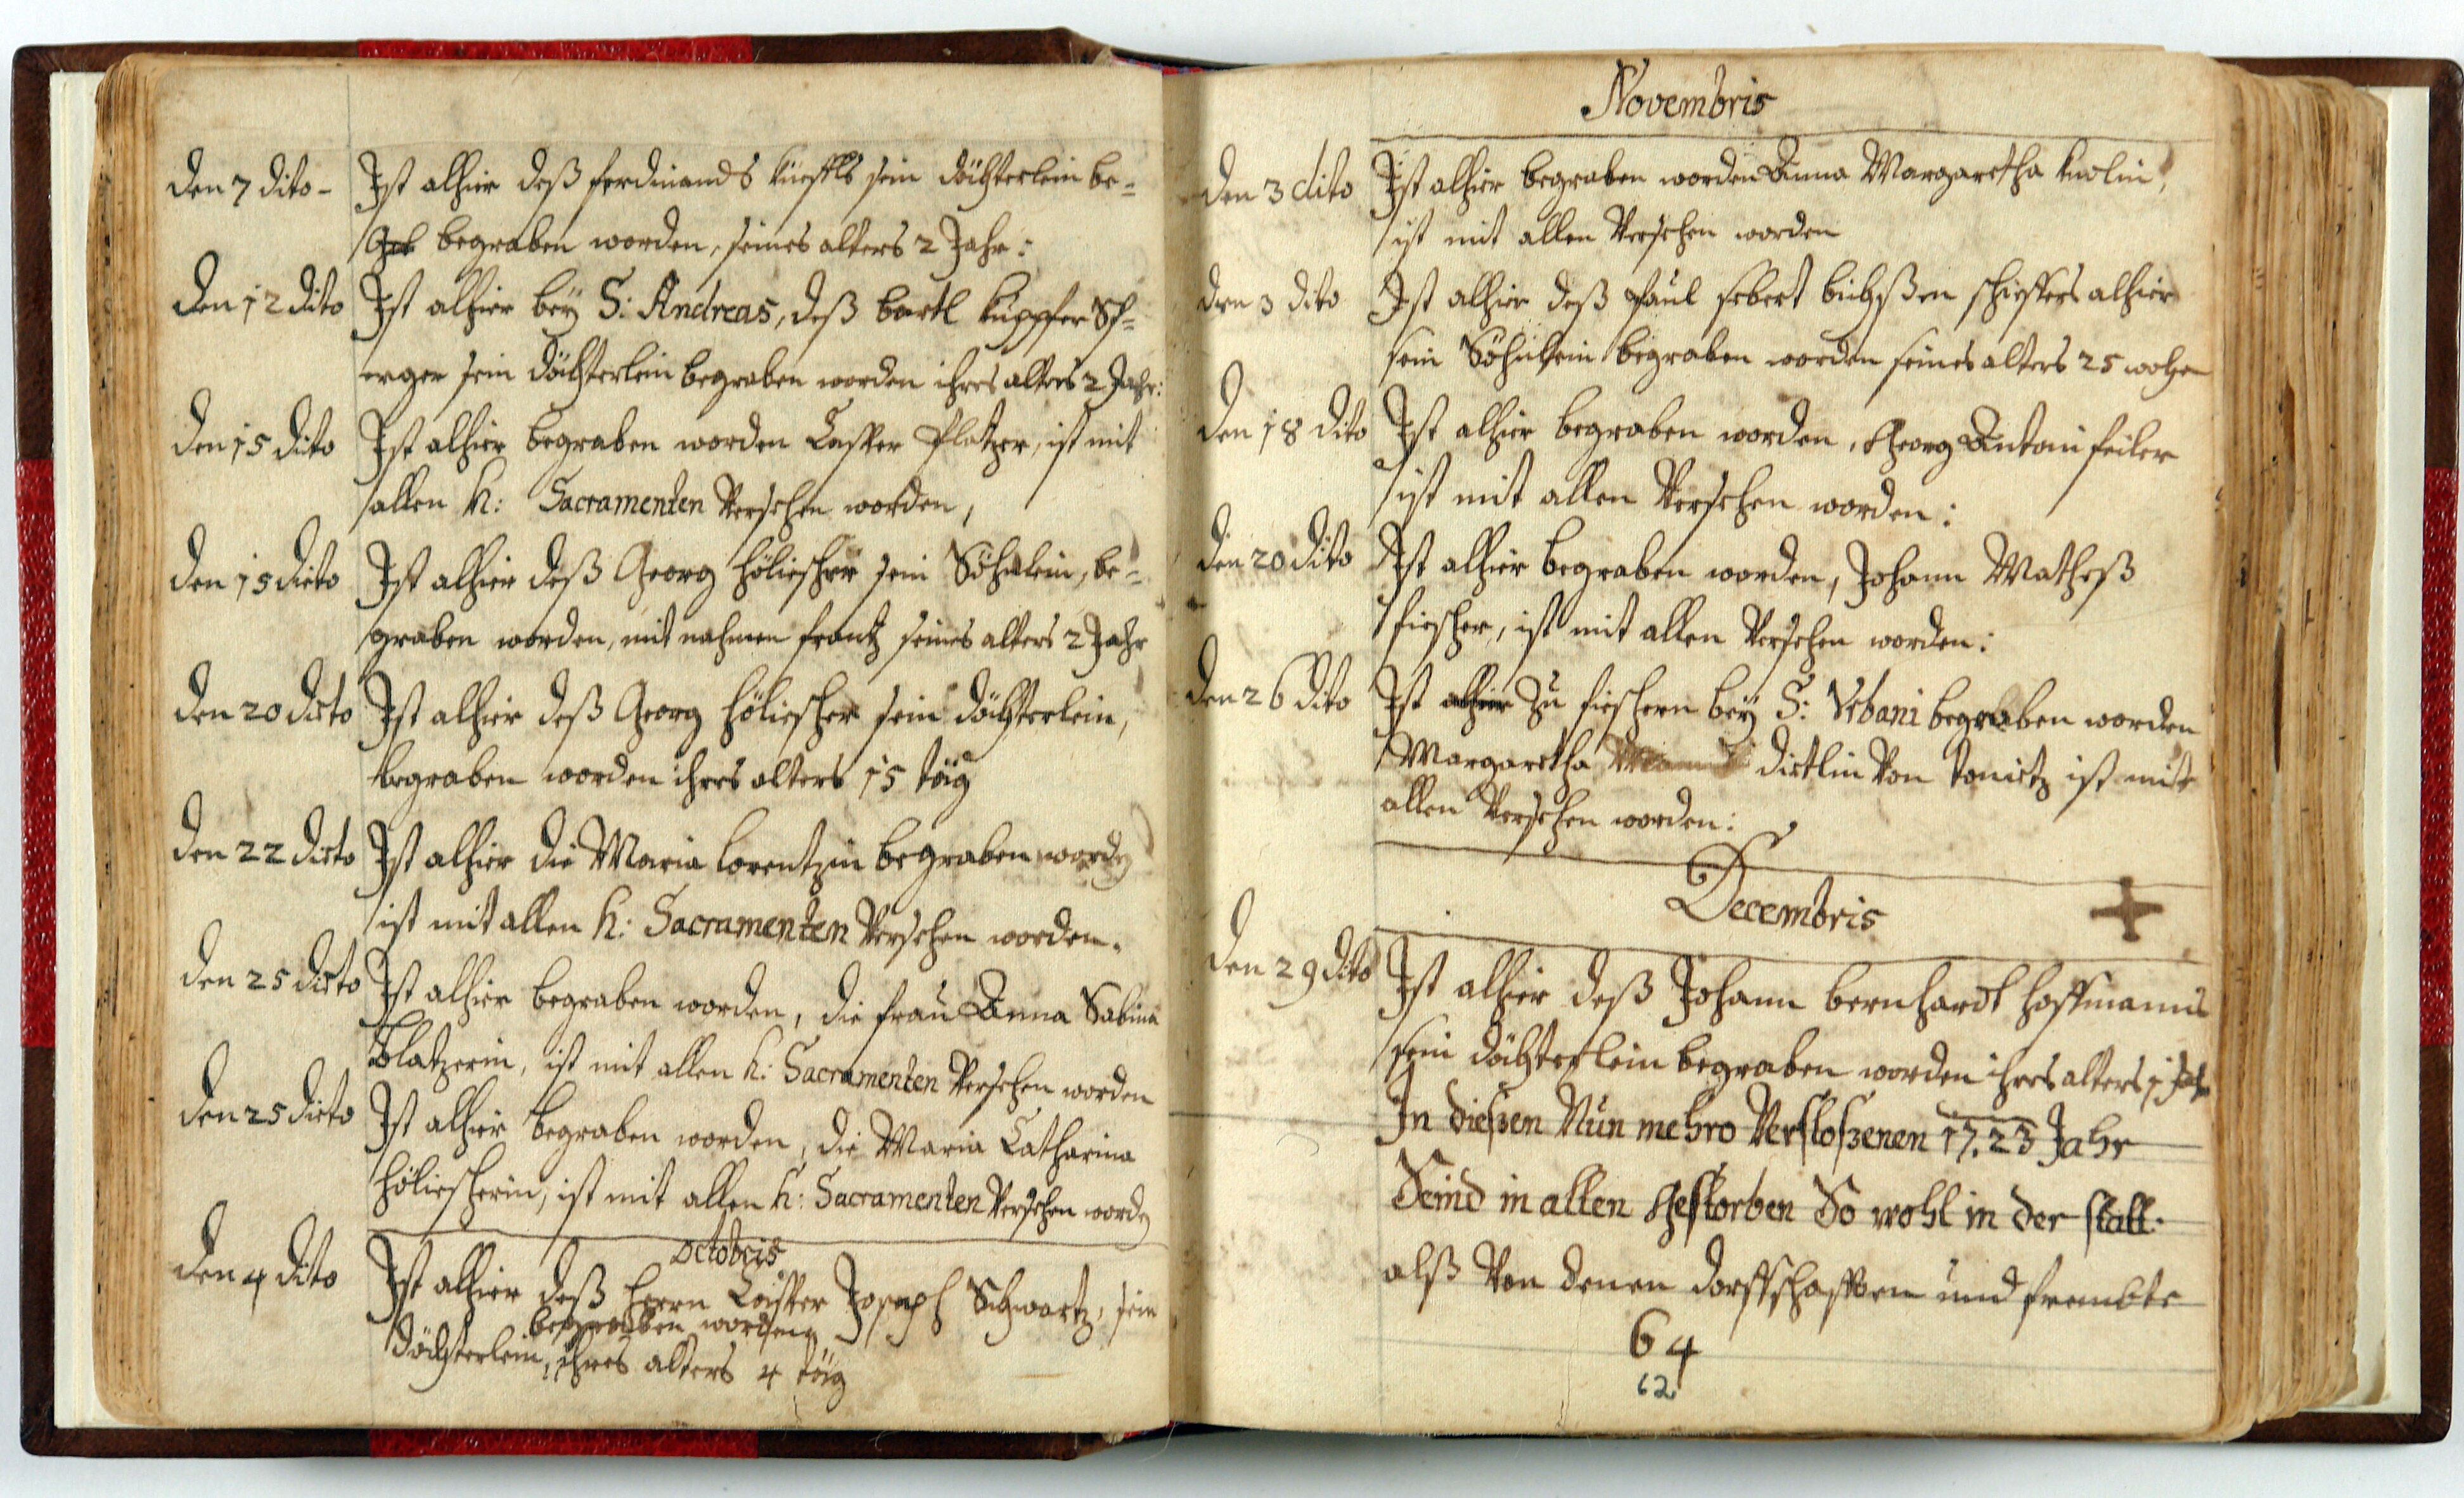 den 7 dito - Ist alhier deß ferdinands Kueffls sein döchterlein be=
begraben worden, seines alters 2 Jahr:
den 12 dito Ist alhier bey S: Andreas, deß bartl Kupffer Sch=
erger sein döchterlein begraben worden ihres alters 2 Jahr:
den 15 dito Ist alhier begraben worden Casper Platzer, ist mit
allen h: Sacramenten Versehen worden,
den 15 dicto Ist alhier deß Georg höliescher sein Söhnlein, be=
graben worden, mit nahmen frantz seines alters 2 Jahr
den 20 dicto Ist alhier deß Georg höliescher sein döchterlein,
begraben worden ihres alters 15 täg
den 22 dicto Ist alhier die Maria Lorentzin begraben worden
ist mit allen h: Sacramenten Versehen worden.
den 25 dicto Ist alhier begraben worden, die frau Anna Sabina
Blatzerin, ist mit allen h: Sacramenten Versehen worden
den 25 dicto Ist alhier begraben worden, die Maria Catharina
höliescherin, ist mit allen h: Sacramenten Versehen worden
octobris
den 4 dito Ist alhier deß herrn Casper Joseph Schwartz, sein
begraben worden
döchterlein, ihres alters 4 täg
Novembris
den 3 dito Ist alhier begraben worden Anna Margaretha
ist mit allen Versehen worden
den 3 dito Ist alhier deß Paul sebert bichßen schieffters alhier
sein Söhnlein begraben worden seines alters 25 wochen
den 18 dito Ist alhier begraben worden, Georg Antoni feiler
ist mit allen Versehen worden:
den 20 dito Ist alhier begraben worden, Johann Matheß
fiescher, ist mit allen Versehen worden:
den 26 dito Ist alhier zu fieschern bey S: Vrbani begraben worden
Margaretha dietlin Von Conietz ist mit
allen Versehen worden:
Decembris
den 29 dito Ist alhier deß Johann bernhardt hoffmanns
sein döchterlein begraben worden ihres alters 1 Jahr
In dießen Nun mehro Verfloßenen 17.23 Jahr
Seind in allen Gestorben So wohl in der statt
alß Von denen dorffschafften und frembte
64
62